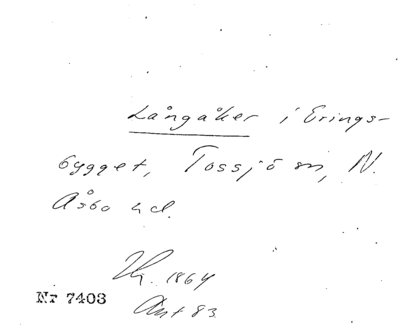 Långåker i Erings-
bygget, Tossjö sn, N.
Åsbo hd.
1864
Nr 7403
Ant 83